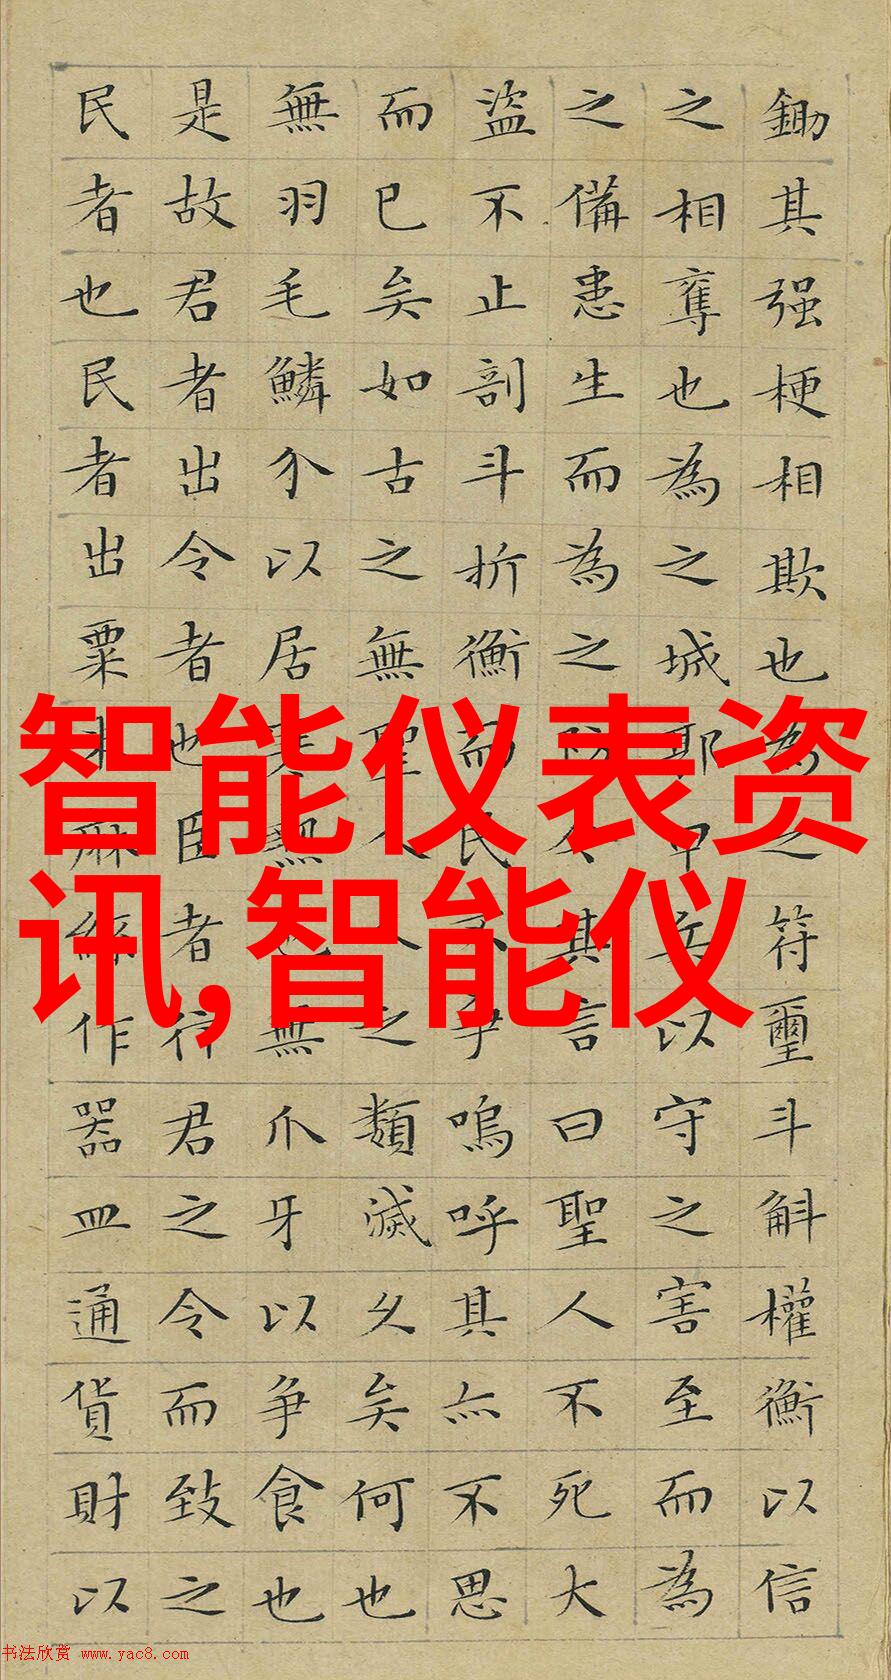 鋤其强梗相欺也為之符璽斗斛權衡以信
之相奪也為之城郭甲兵以守之害至而為
之備患生而為之防今其言曰聖人不死大
盜不止剖斗折衡而民不争嗚呼其亦不思
而已矣如古之無聖人人之類滅久矣何也
無羽毛鱗介以居寒熱也無爪牙以争食也
是故君者出令者也臣者行君之令而致之
民者也民者出粟米麻絲作器皿通貨財以
智能仪表资
讯,智能仪
书法欣赏 www.yac8.com